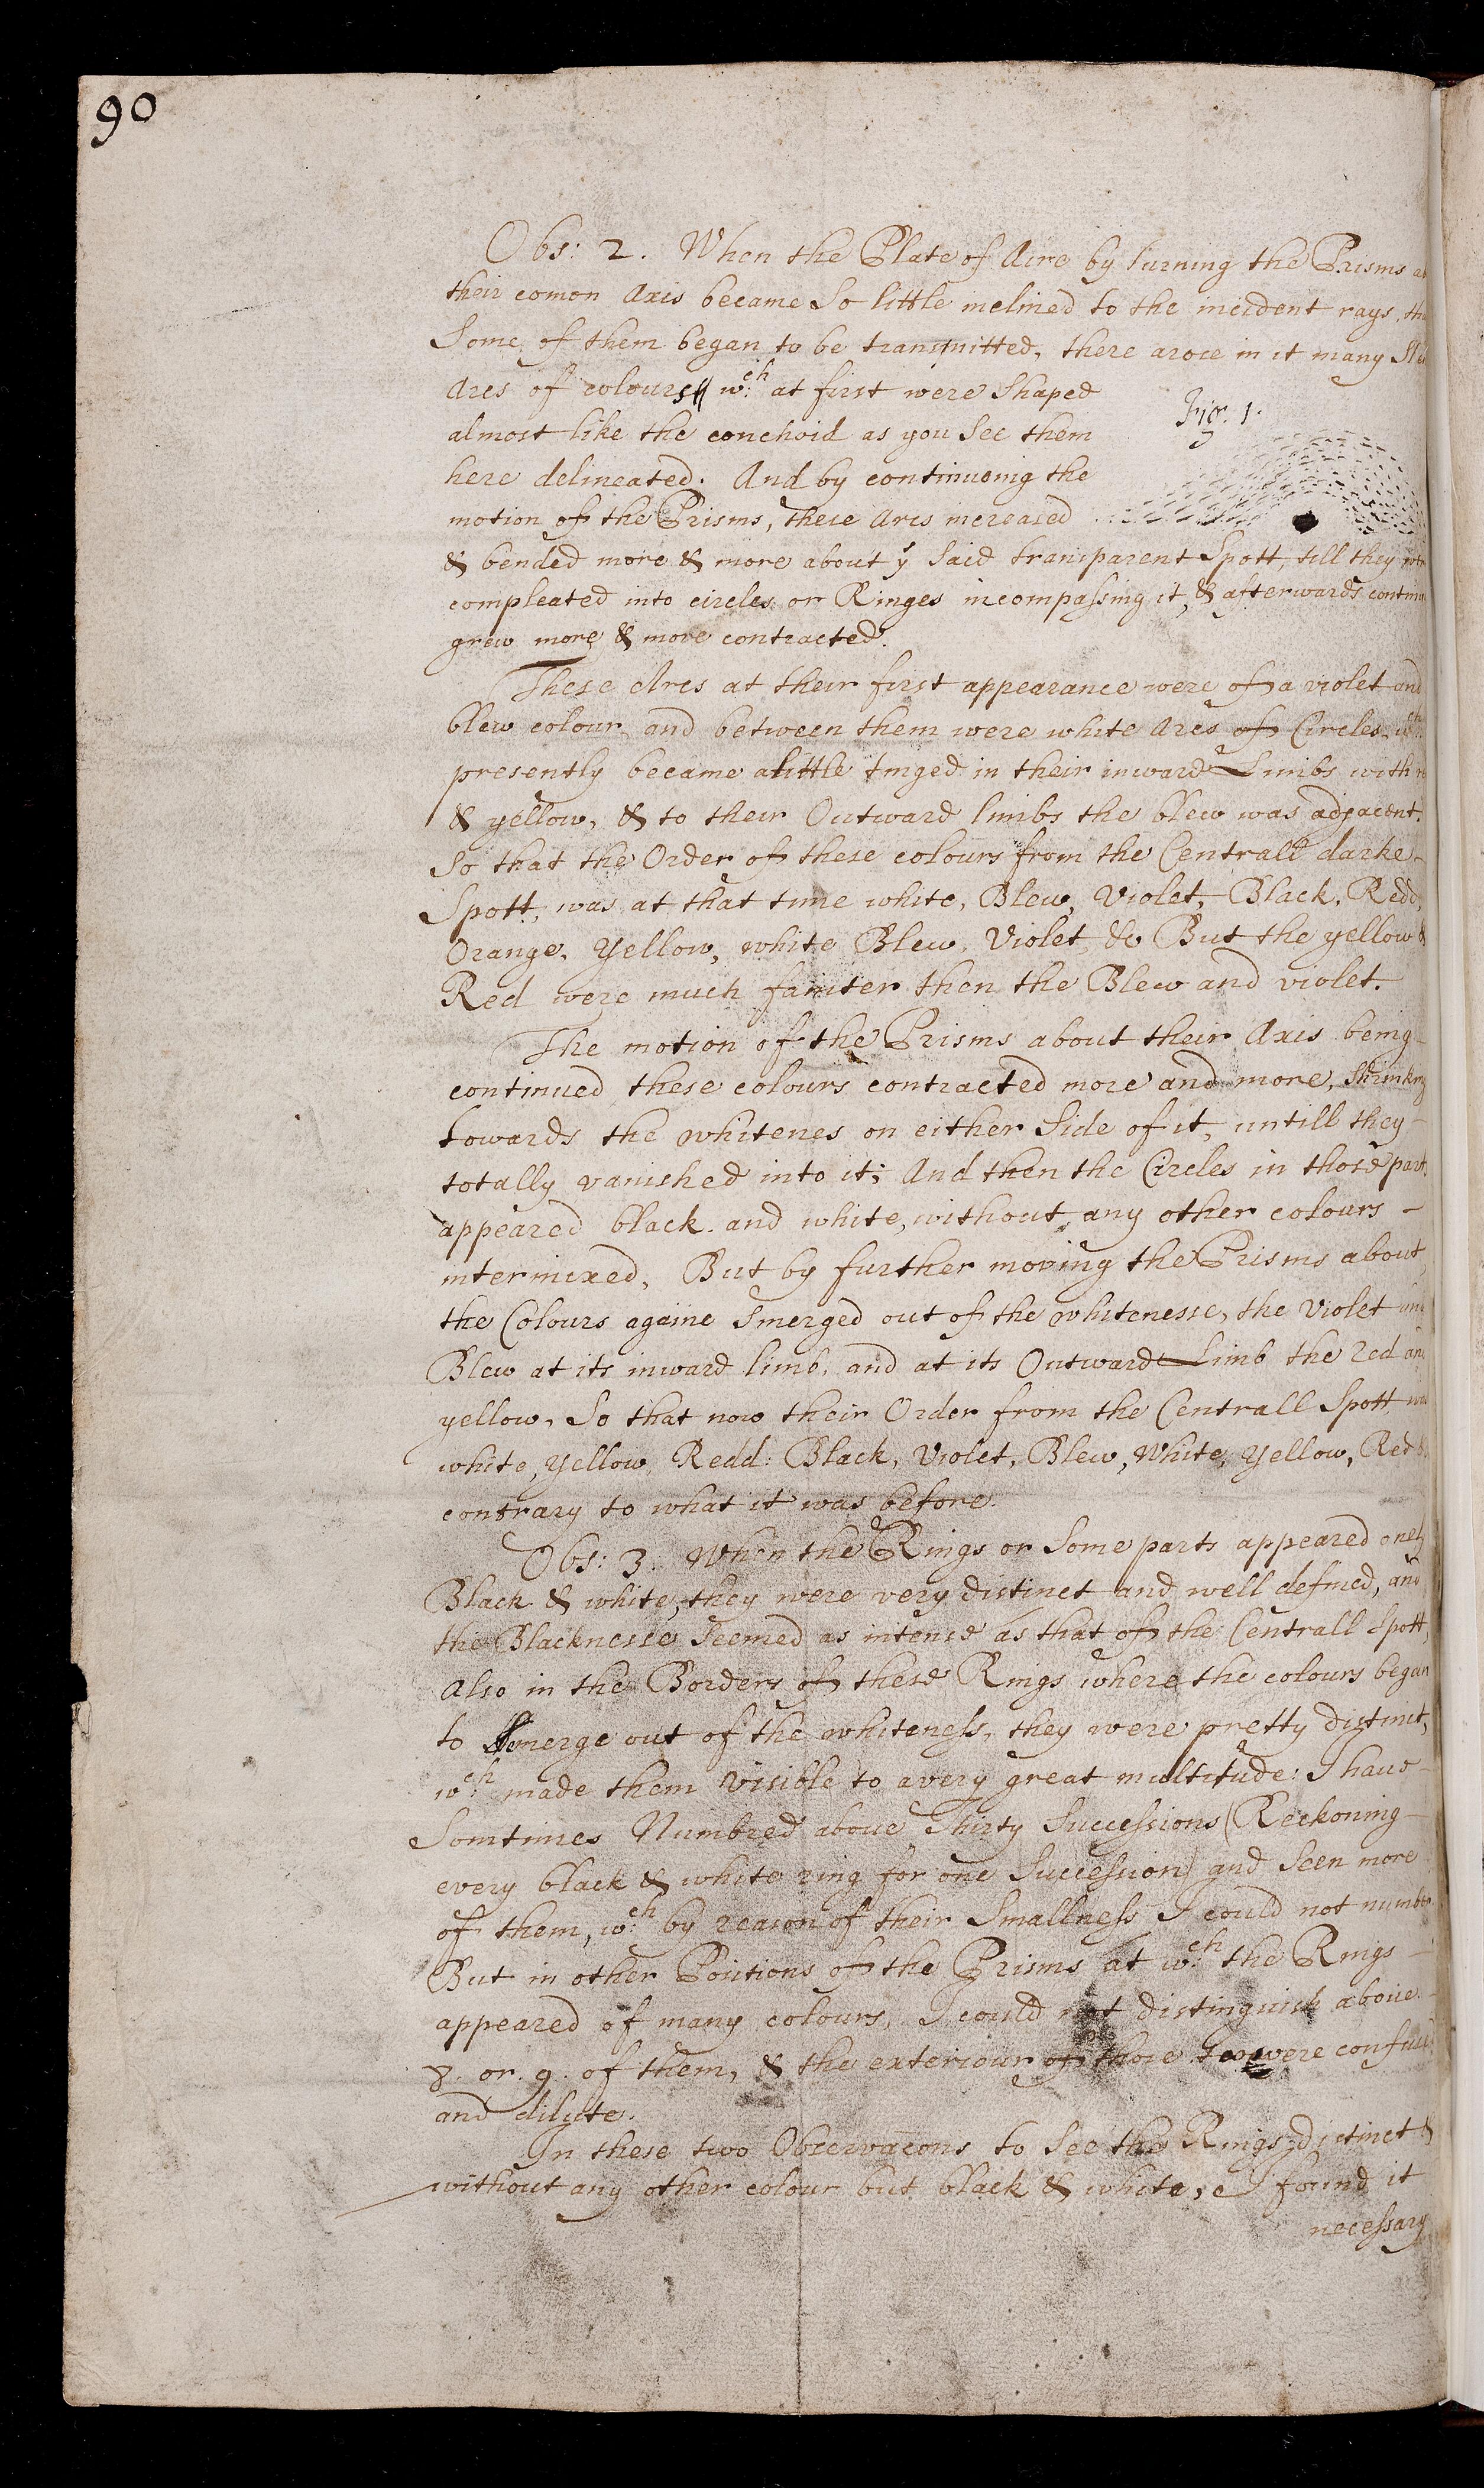 90
Obs: 2. When the Plate of Aire by turning the Prisms
their comon Axis became So little inclined to the incident rays,
Some of them began to be transmitted, there arose in it many
Arcs of colours wch at first were Shaped
almost like the conchoid as you See them
here delineated. And by continuoing the
motion of the Prisms, these Arcs increased
Fig. 1.
& bended more & more about ye Said transparent Spott, till they
compleated into circles or Ringes incompassing it, & afterwards
grew more & more contracted.
These Arcs at their first appearance were of a violet and
blew colour, and between them were white Arcs of Circles, wch
presently became a little tinged in their inward Limbs with
& yellow, & to their Outward limbs the blew was adjacent.
So that the Order of these colours from the Centrall darke
Spott, was at that time white, Blew, Violet, Black, Redd,
Orange, Yellow, white Blew, Violet, &c But the yellow &
Red were much fainter then the Blew and violet.
The motion of the Prisms about their Axis being
continued these colours contracted more and more, Shrinking
towards the whitenes on either Side of it, untill they
totally vanished into it; And then the Circles in those part
appeared black and white, without any other colours
intermixed, But by further moving the Prisms about,
the Colours againe Emerged out of the whitenesse, the Violet and
Blew at its inward limb, and at its Outward Limb the red and
yellow, So that now their Order from the Centrall Spott
white, Yellow, Redd: Black, Violet, Blew, White, Yellow, Red
contrary to what it was before.
Obs: 3. When the Rings or Some parts appeared onely
Black & white, they were very distinct and well defined, and
the Blacknesse Seemed as intense as that of the Centrall Spott,
Also in the Borders of these Rings where the colours began
to Emerge out of the whiteness, they were pretty distinct,
wch made them Visible to a very great multitude: I have
Somtimes Numbred above Thirty Successions (Reckoning
every black & white ring for one Succession) and Seen more
of them, wch by reason of their Smallness I could not number
But in other Positions of the Prisms at wch the Rings
appeared of many colours, I could not distinguish above
8. or. 9. of them, & the exteriour of those too were confused
and dilute.
In these two Observacons to See the Rings distinct &
without any other colour but black & white, I found it
necessary